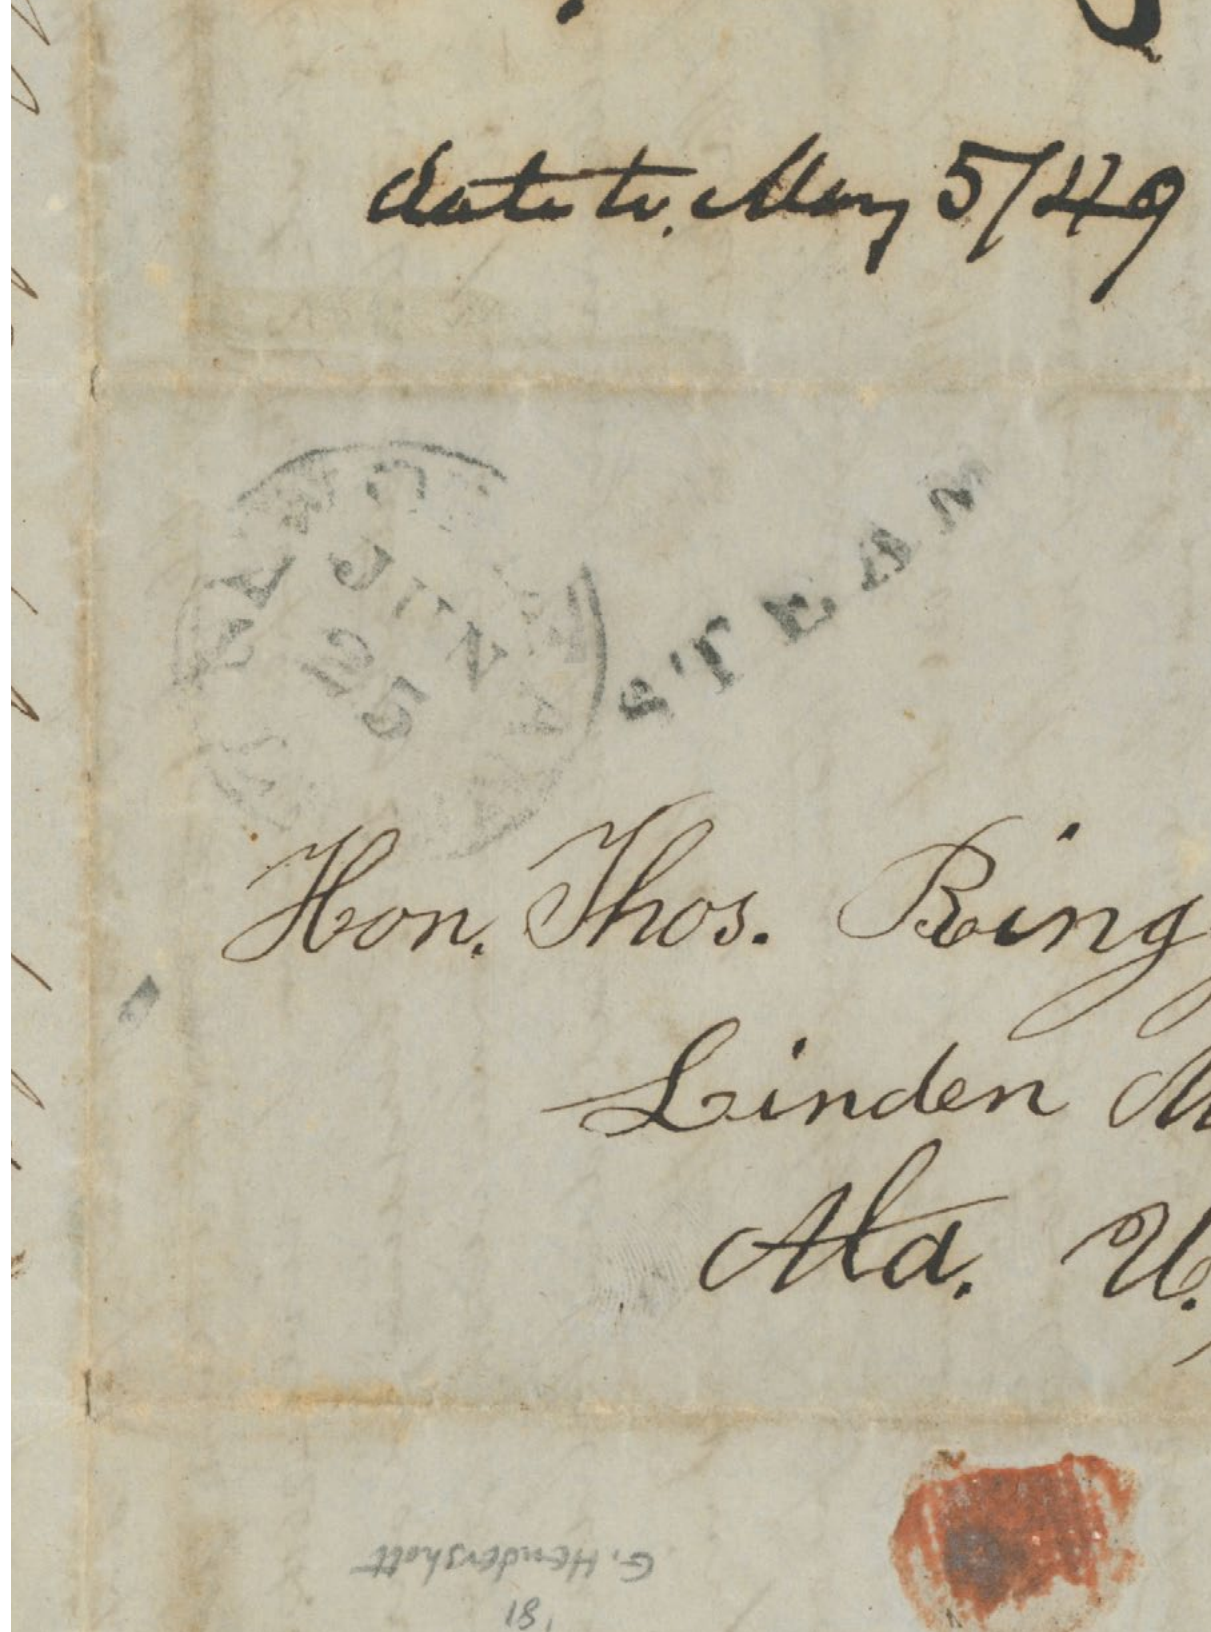 date to. May 5/49
JUN
25
STEAM
Hon. Thos. Ring
Linden
Ala. U.
G. Hendershott
'81